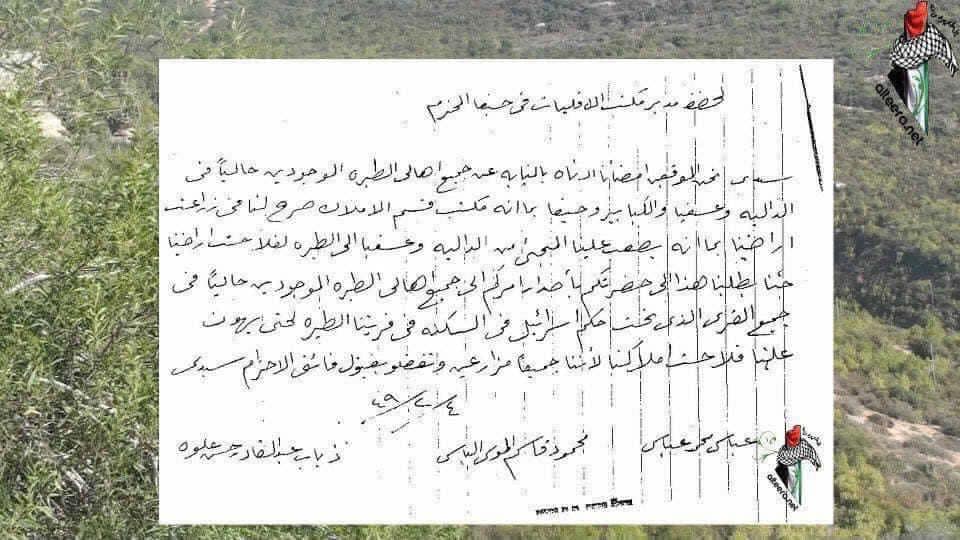 لحضرة مدير مكتب الاقليات في حيفا المحترم
سيدي نحن الموقعين امضائنا ادناه بالنيابه عن جميع اهالي الطيره الموجودين حالياً في
الداليه وعسفيا والكبابير وحيفا بما انه مكتب قسم الاملاك صرح لنا في زراعت
اراضينا بما انه يصعب علينا المجئ من الداليه وعسفيا الى الطيره لفلاحت اراضينا
جئنا بطلبنا هذا الى حضرتكم بأصدار امركم الى جميع اهالي الطيره الموجودين حالياً في
جميع القرى الذي تحت حكم اسرائيل في السكنه في قريتنا الطيره لحتى يهون
علينا فلاحت املاكنا لأننا جميعاً مزارعين وتفضلو بقبول فائق الاحترام سيدي
٤/٢/٤٩
عباس محمد عباس
محمود قاسم الموسى الباش
ذياب عبد القادر حسن علوه
alteera.net
alteera.net